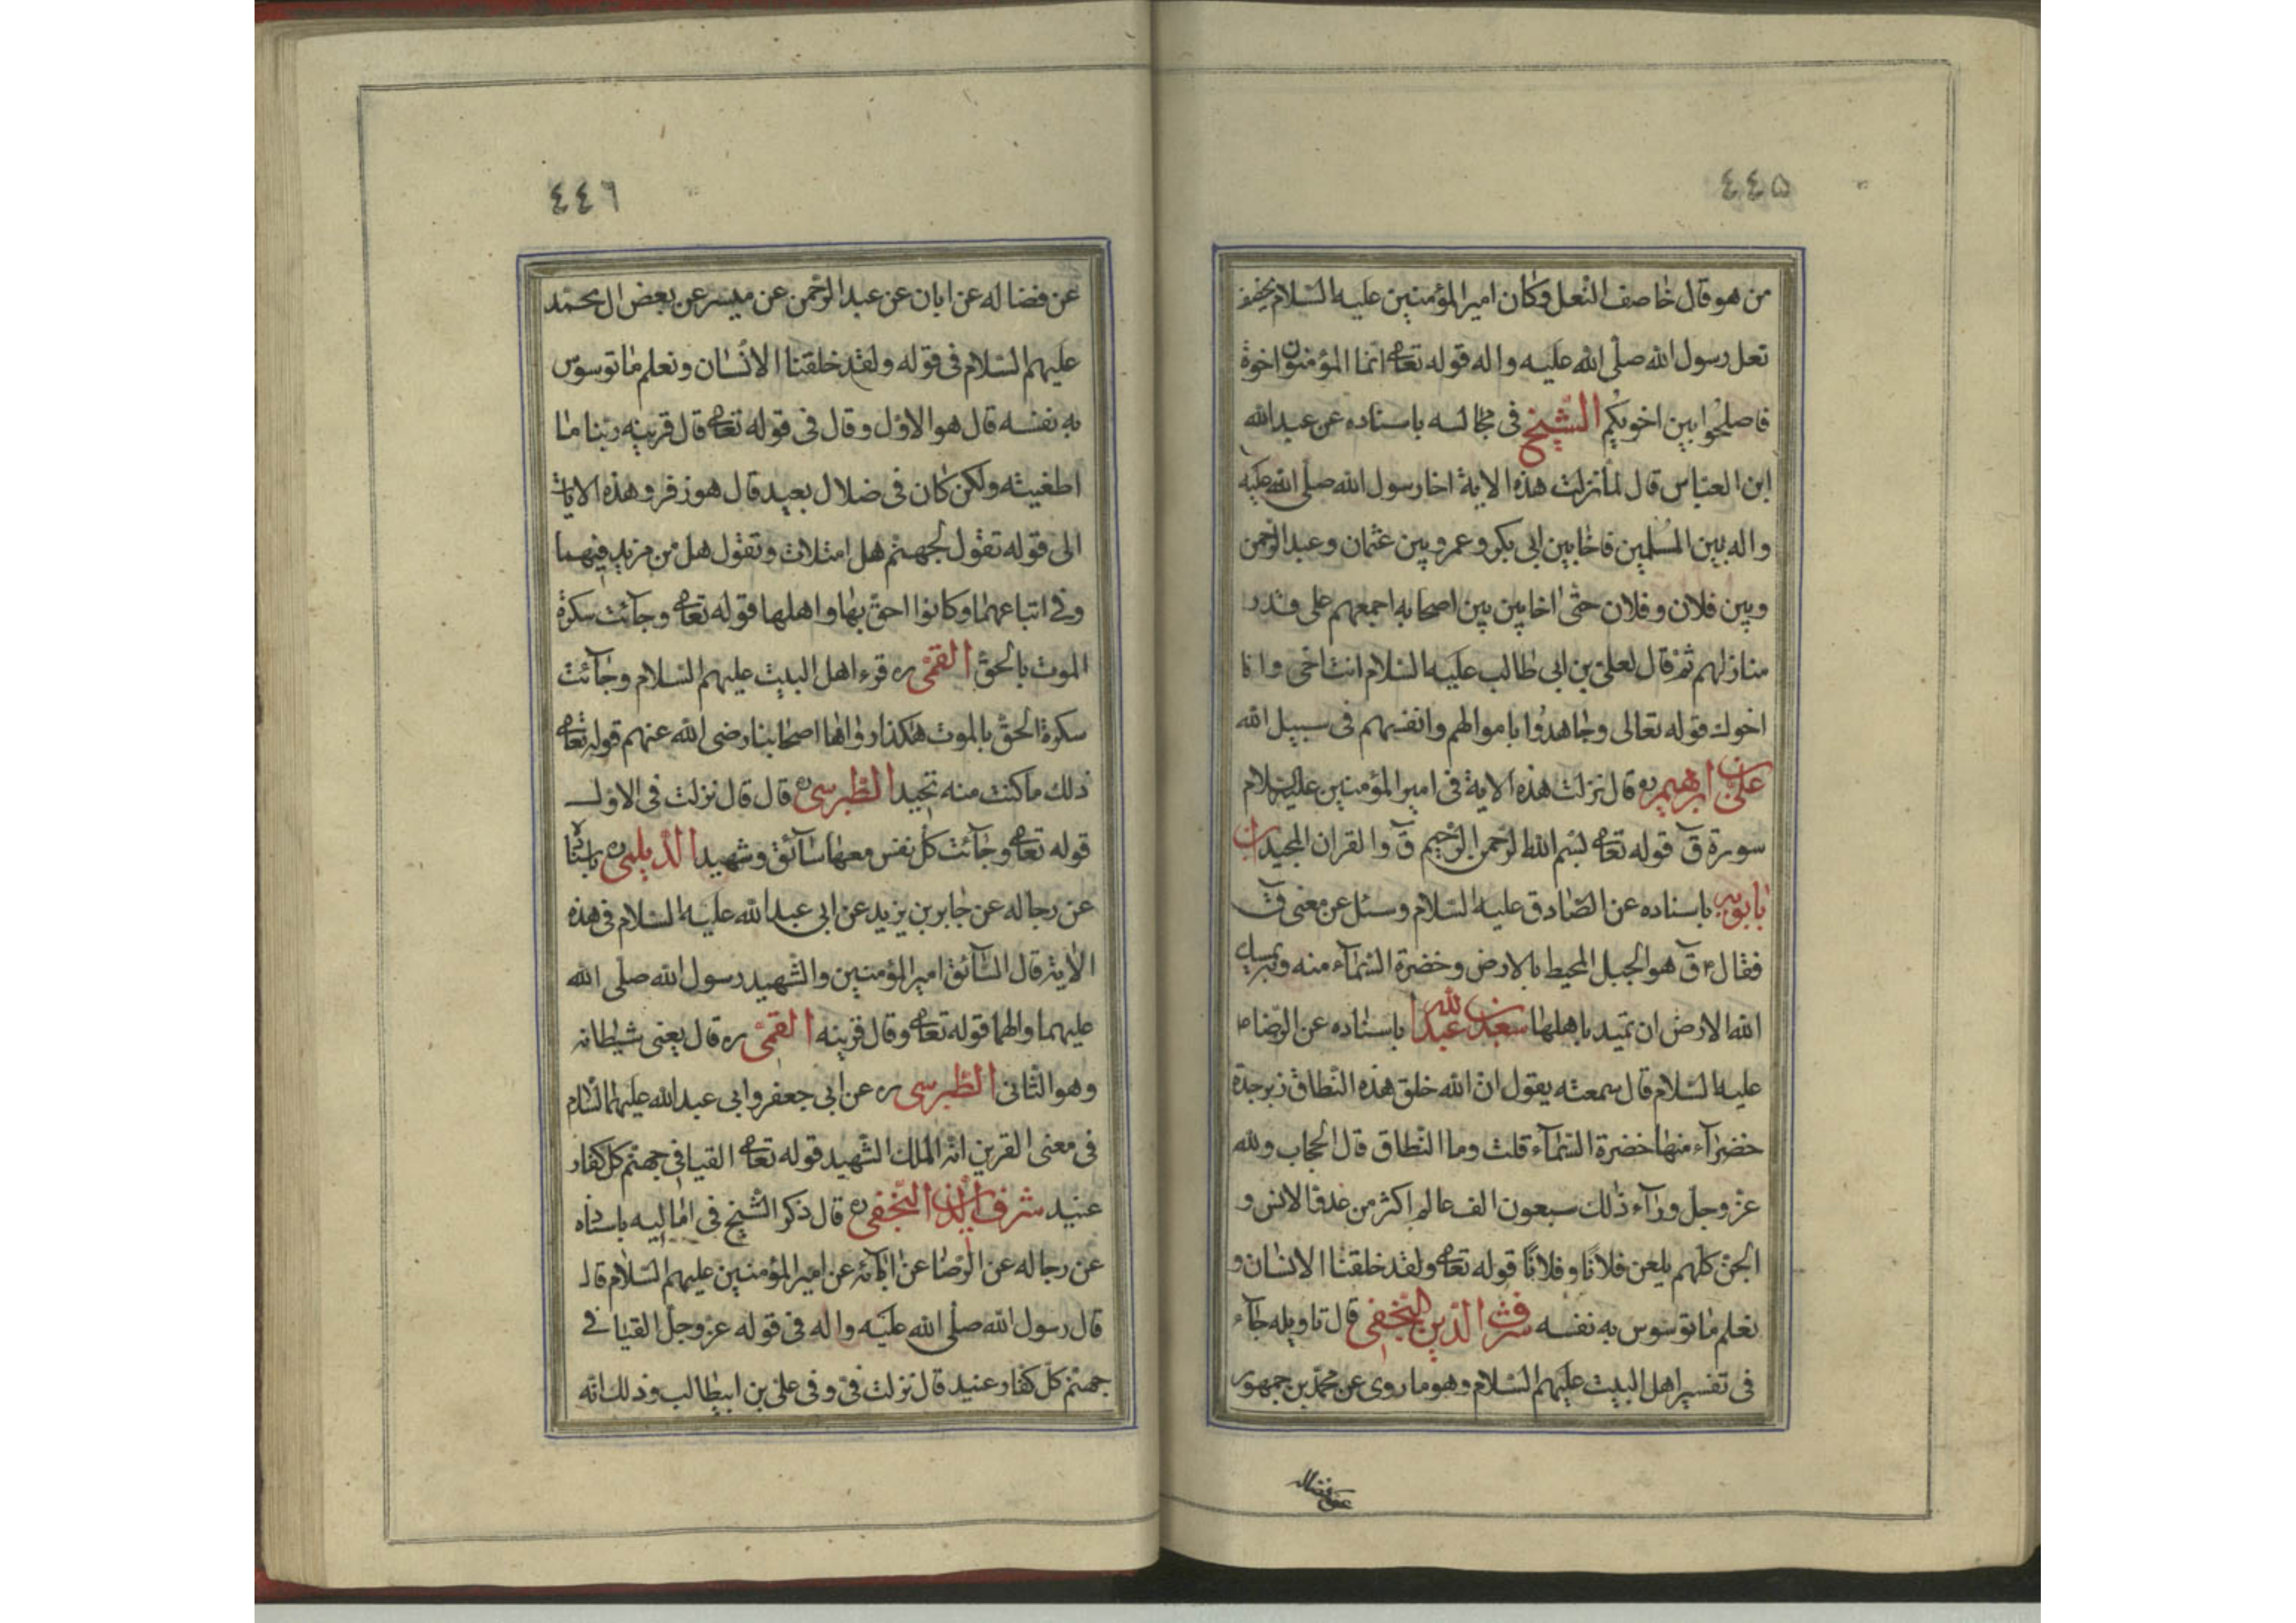 ٤٤٥
من هو قال خاصف النعل وكان امير المؤمنين عليه السلام يخصف
نعل رسول الله صلى الله عليه واله قوله تعالى انما المؤمنون اخوة
فاصلحوا بين اخويكم الشيخ فى مجالسه باسناده عن عبد الله
ابن العباس قال لما نزلت هذه الاية اخا رسول الله صلى الله عليه
واله بين المسلمين فاخا بين ابى بكر وعمر وبين عثمان وعبد الرحمن
وبين فلان وفلان حتى اخا بين بين اصحابه اجمعهم على قدر
منازلهم ثم قال لعلى بن ابى طالب عليه السلام انت اخى وانا
اخوك قوله تعالى وجاهدوا باموالهم وانفسهم فى سبيل الله
على بن ابرهيم ره قال نزلت هذه الاية فى امير المؤمنين عليه السلام
سورة ق قوله تعالى بسم الله الرحمن الرحيم ق والقران المجيد ابن
بابويه باسناده عن الصادق عليه السلام وسئل عن معنى ق
فقال ق هو الجبل المحيط بالارض وخضرة السماء منه وبه يمسك
الله الارض ان تميد باهلها سعد بن عبد الله باسناده عن الرضا
عليه السلام قال سمعته يقول ان الله خلق هذه النطاق زبرجدة
خضراء منها خضرة السماء قلت وما النطاق قال الحجاب ولله
عز وجل وراء ذلك سبعون الف عالم اكثر من عدة الانس و
الجن كلهم يلعن فلانا وفلانا قوله تعالى ولقد خلقنا الانسان و
نعلم ما توسوس به نفسه شرف الدين النجفى قال تاويله جاء
فى تفسير اهل البيت عليهم السلام وهو ما روى عن محمد بن جمهور
عن فضاله
٤٤٦
عن فضاله عن ابان عن عبد الرحمن عن ميسر عن بعض ال محمد
عليهم السلام فى قوله ولقد خلقنا الانسان ونعلم ما توسوس
به نفسه قال هو الاول وقال فى قوله تعالى قال قرينه ربنا ما
اطغيته ولكن كان فى ضلال بعيد قال هو زفر وهذه الايات
الى قوله تقول لجهنم هل امتلات وتقول هل من مزيد فيهما
وفى اتباعهما وكانوا احق بها واهلها قوله تعالى وجائت سكرة
الموت بالحق القمى ره قرء اهل البيت عليهم السلام وجائت
سكرة الحق بالموت هكذا رواها اصحابنا رضى الله عنهم قوله تعالى
ذلك ما كنت منه تحيد الطبرسى ره قال قال نزلت فى الاول
قوله تعالى وجائت كل نفس معها سائق وشهيد الديلمى ره باسناده
عن رجاله عن جابر بن يزيد عن ابى عبد الله عليه السلام فى هذه
الاية قال السائق امير المؤمنين والشهيد رسول الله صلى الله
عليهما والهما قوله تعالى وقال قرينه القمى ره قال يعنى شيطانه
وهو الثانى الطبرسى ره عن ابى جعفر وابى عبد الله عليهما السلام
فى معنى القرين انه الملك الشهيد قوله تعالى القيا فى جهنم كل كفار
عنيد شرف الدين النجفى ره قال ذكر الشيخ فى اماليه باسناده
عن رجاله عن الرضا عن ابائه عن امير المؤمنين عليهم السلام قال
قال رسول الله صلى الله عليه واله فى قوله عز وجل القيا فى
جهنم كل كفار عنيد قال نزلت فى وفى على بن ابيطالب وذلك انه